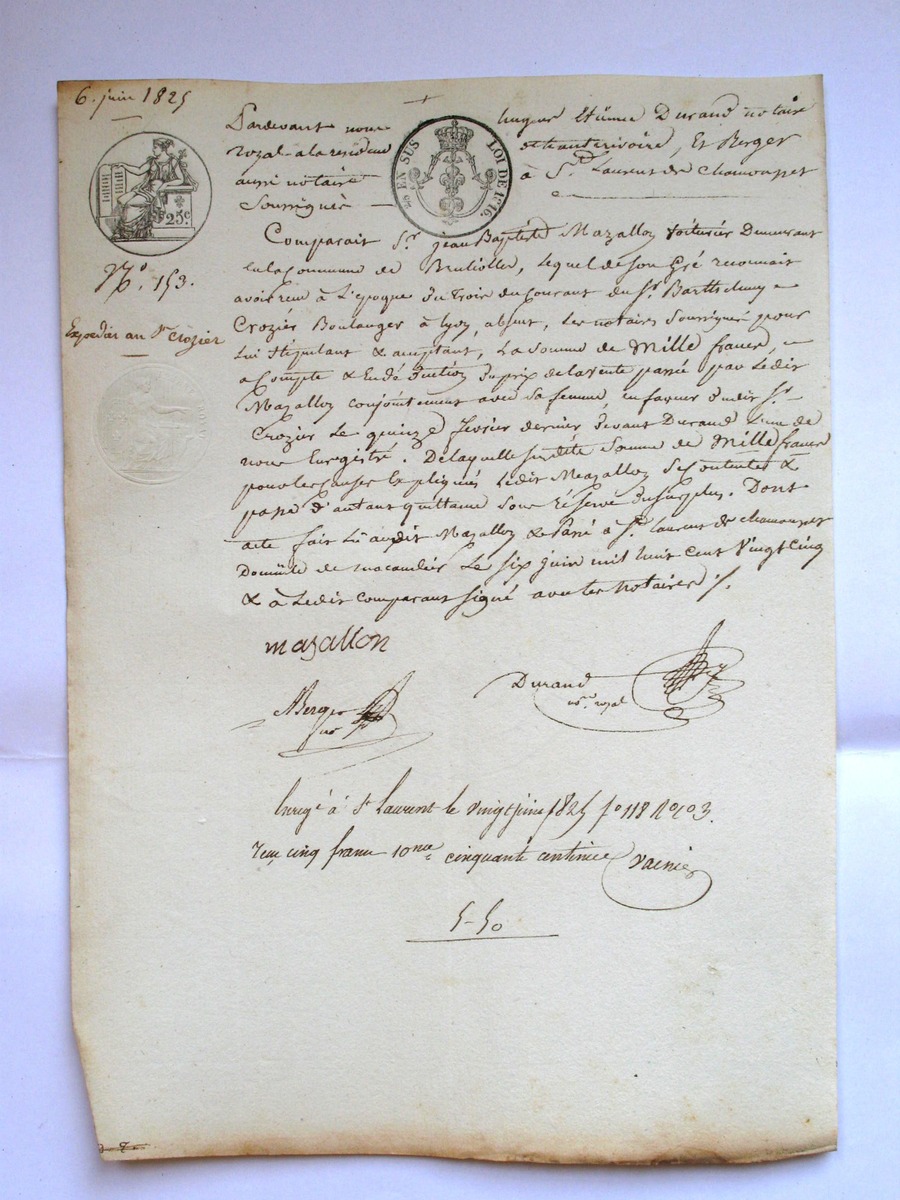 6. juin 1825
Pardevant nous hugues Etienne Durand notaire
royal a la residence de hauterivoire, Et Berger
aussi notaire à St. Laurent de Chamousset
Soussignés
EN SUS LOI DE 1816.
25c
No. 153.
Expedié au Sr Crozier
Comparait Sr. jean Baptiste Mazallon voiturier Demeurant
en la Commune de Brulioller, lequel de Son Gré reconnait
avoir reçu à L'époque du trois du Courant du Sr. Barthelemy
Crozier Boulanger à lyon, absent, Les notaires Soussignés pour
Lui Stipulant & acceptant, La Somme de Mille francs,
a Compte & En déduction du prix de la vente passé par Ledit
Mazallon conjointement avec Sa femme, en faveur dudit Sr.
Crozier Le quinze février dernier devant Durand L'un de
nous Enregistré. De laquelle susdite Somme de Mille francs
pour les causes Expliqués Ledit Mazallon Se Contente &
passe d'autant quittance Sous réserve du surplus. Dont
acte fait Lu audit Mazallon & Passé à St. Laurent de chamousset
Domicile de Le Six juin mil huit cent vingt cinq
& à Ledit Comparant Signé avec les Notaires
mazallon
Berger
not
Durand
not. royal
Enregé à St Laurent le vingt juin 1825 fo 118
reçu cinq francs 10me cinquante centimes
5-50